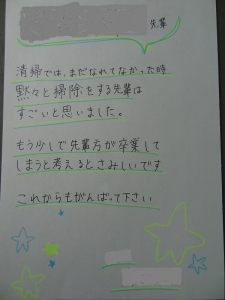 先輩
清掃では、まだなれてなかった時
黙々と掃除をする先輩は
すごいと思いました。
もう少しで先輩方が卒業して
しまうと考えるとさみしいです
これからもがんばって下さい